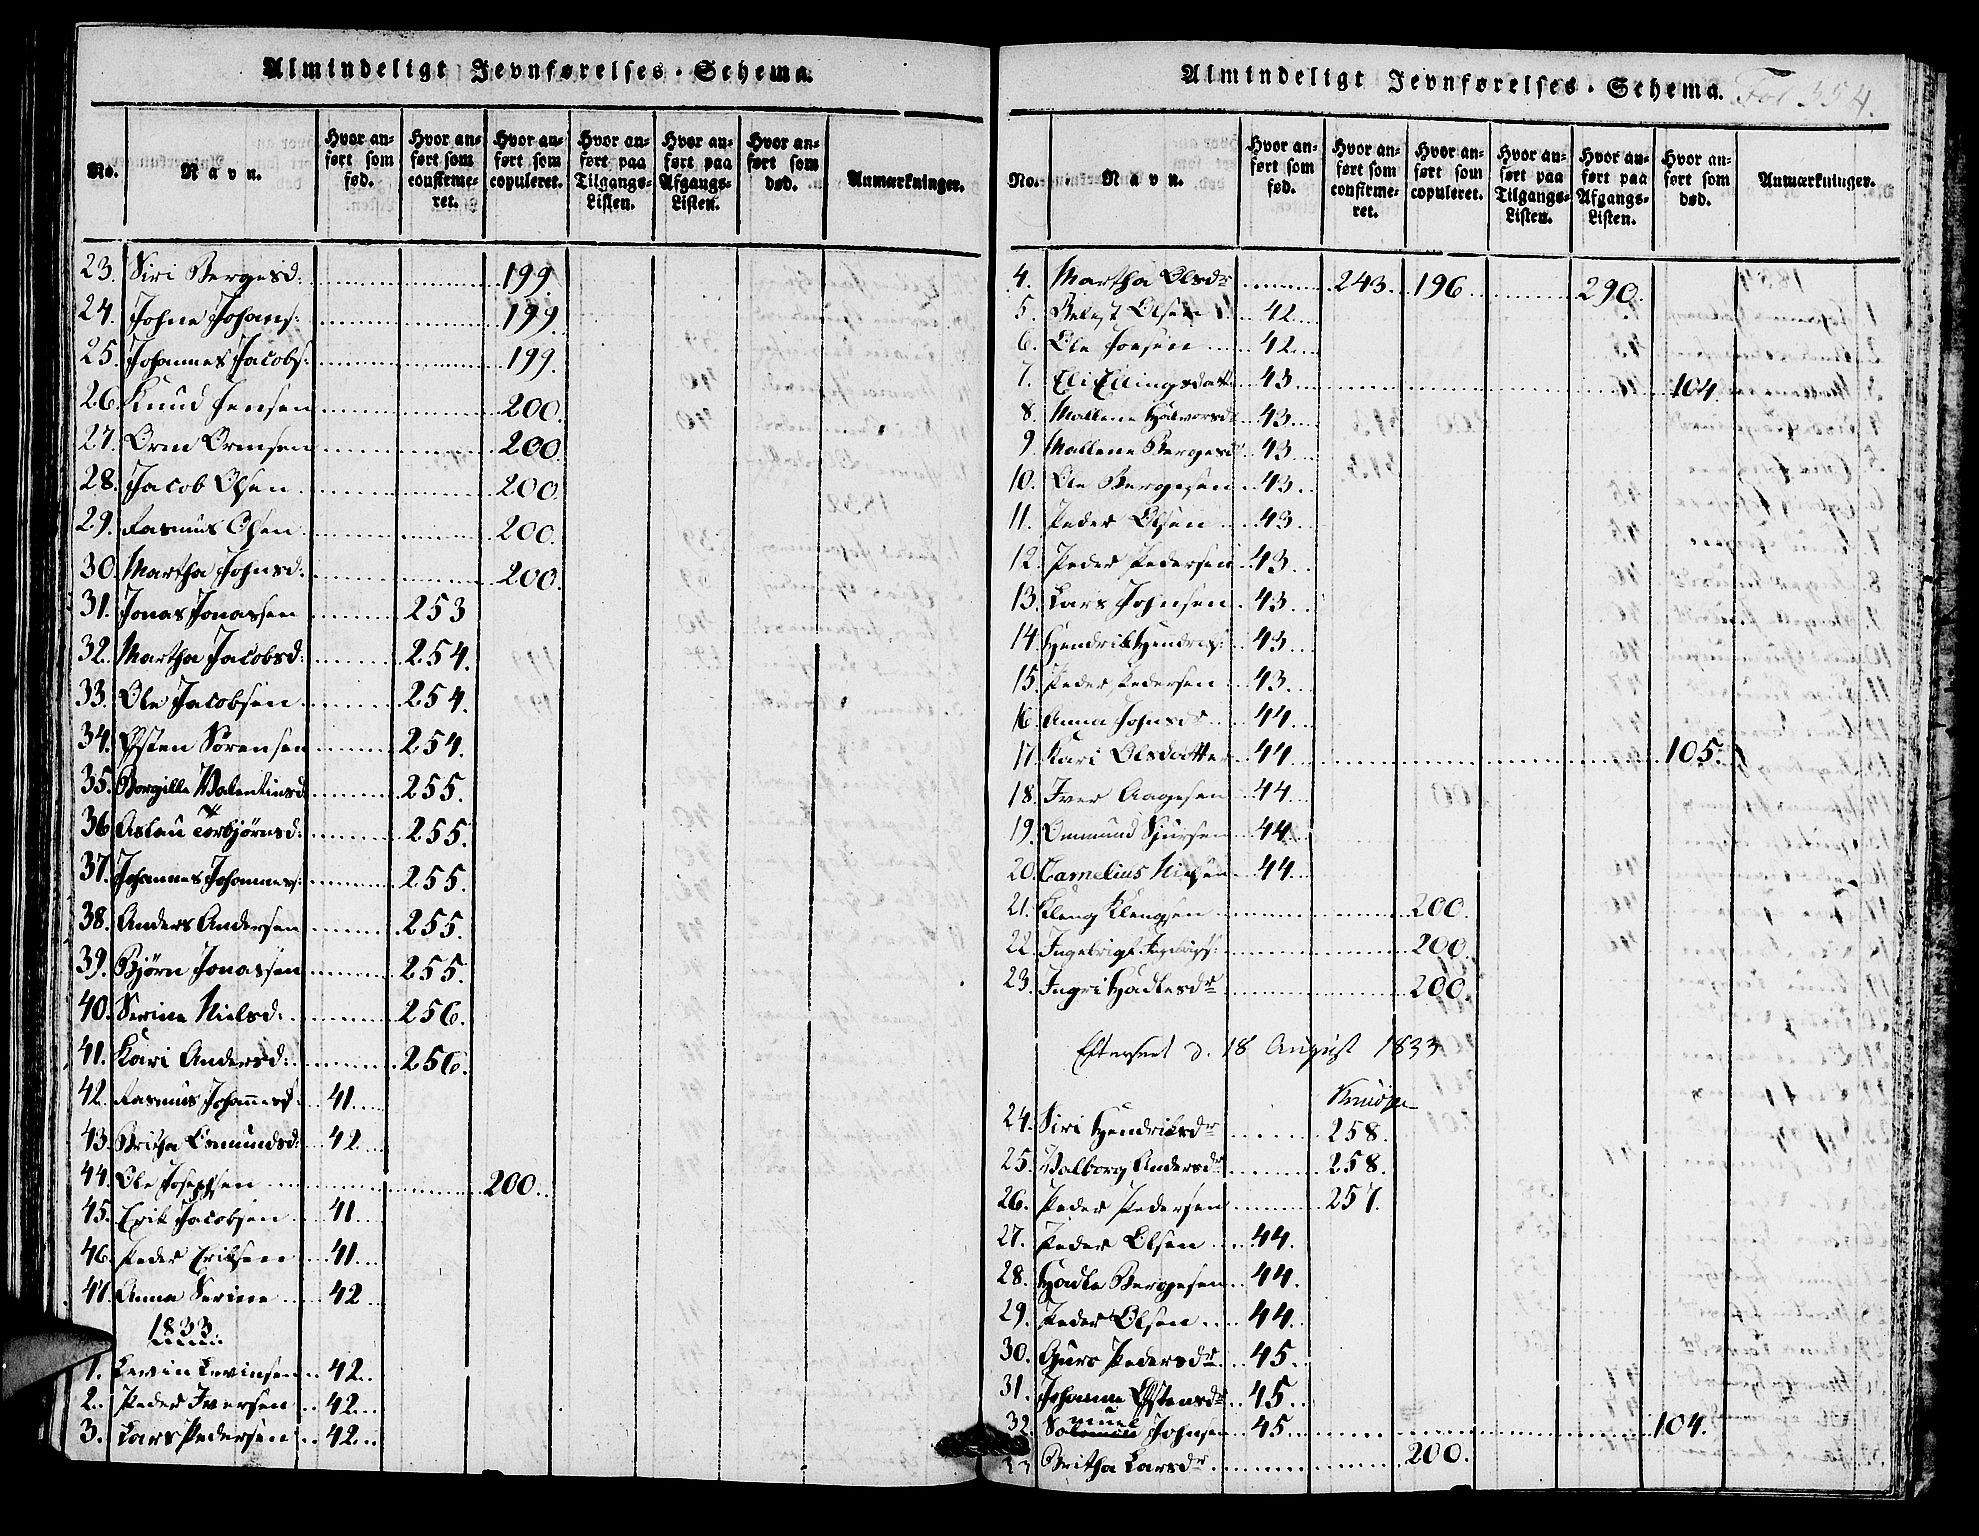 Almindeligt Jevnførelses-Schema.
No. Navn. Hvor anført som fød. Hvor anført som confirmeret. Hvor anført som copuleret. Hvor anført paa Tilgangs-Listen. Hvor anført paa Afgangs-Listen. Hvor anført som død. Anmærkninger.
23. Siri Bergesd: 199.
24. Johne Johans: 199.
25. Johannes Jacobs: 199.
26. Knud Jensen 200.
27. Orm Ormsen 200.
28. Jacob Olsen 200.
29. Rasmus Olsen 200.
30. Martha Johnsd: 200.
31. Jonas Jonassen 253
32. Martha Jacobsd: 254.
33. Ole Jacobsen 254.
34. Østen Sørensen 254.
35. Borgille Valentinsd 255.
36. Aslau Torbjørnsd: 255.
37. Johannes Johannes: 255.
38. Anders Andersen 255.
39. Bjørn Jonassen 255.
40. Serine Nielsd: 256.
41. Kari Andersd: 256.
42. Rasmus Johannesf: 41.
43. Britha Osmundsd: 42.
44. Ole Josephsen 200.
45. Erik Jacobsen 41.
46. Peder Eriksen 41.
47. Anna Serine 42
1833.
1. Levin Levinsen 42.
2. Peder Iversen 42.
3. Lars Pedersen 42.
Almindeligt Jevnførelses-Schema.
Fol 354.
No. Navn. Hvor anført som fød. Hvor anført som confirmeret. Hvor anført som copuleret. Hvor anført paa Tilgangs-Listen. Hvor anført paa Afgangs-Listen. Hvor anført som død. Anmærkninger.
4. Martha Olsdr 243. 196 290.
5. Olsen 42.
6. Ole 42.
7. Eli Ellingsdatt 43. 104.
8. Mallene Halvorsd 43.
9. Mallene Bergesd 43.
10. Ole Bergesen 43.
11. Peder Olsen 43.
12. Peder Pedersen 43.
13. Lars Johnsen 43.
14. Hendrik Hendriks: 43.
15. Peder Pedersen 43.
16. Anna Johnsdr 44.
17. Kari Olsdatter 44. 105.
18. Iver Aagesen 44.
19. Ommund Sjursen 44.
20. Cornelius Nielsen 44.
21. Kleng Klengsen 200.
22. Ingebrigt 200.
23. Ingri Hadlesdr 200.
Efterseet d. 18 August 1833
24. Siri Hendriksdr 258.
25. Valborg Andersdr 258.
26. Peder Pedersen 257.
27. Peder Olsen 44.
28. Hadle Bergesen 44.
29. Peder Olsen 44.
30. Guro Pedersdr 45.
31. Johanne Østensdr 45.
32. Johnsen 45. 104.
Britha Larsdr 200.